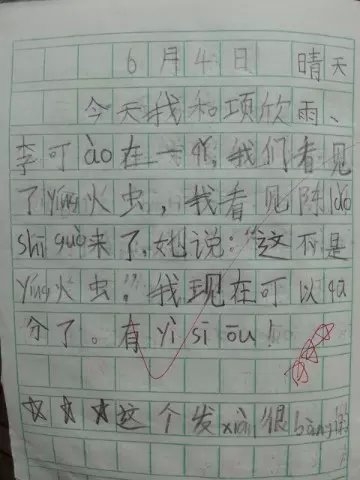 6月4日 晴天
今天我和项欣雨、
李可ào在一qǐ,我们看见
了yíng火虫,我看见陈lǎo
shī guò来了,她说:“这不是
yíng火虫”,我现在可以qū
分了。有yì sī ōu!
☆☆☆这个发xiàn很bàng的